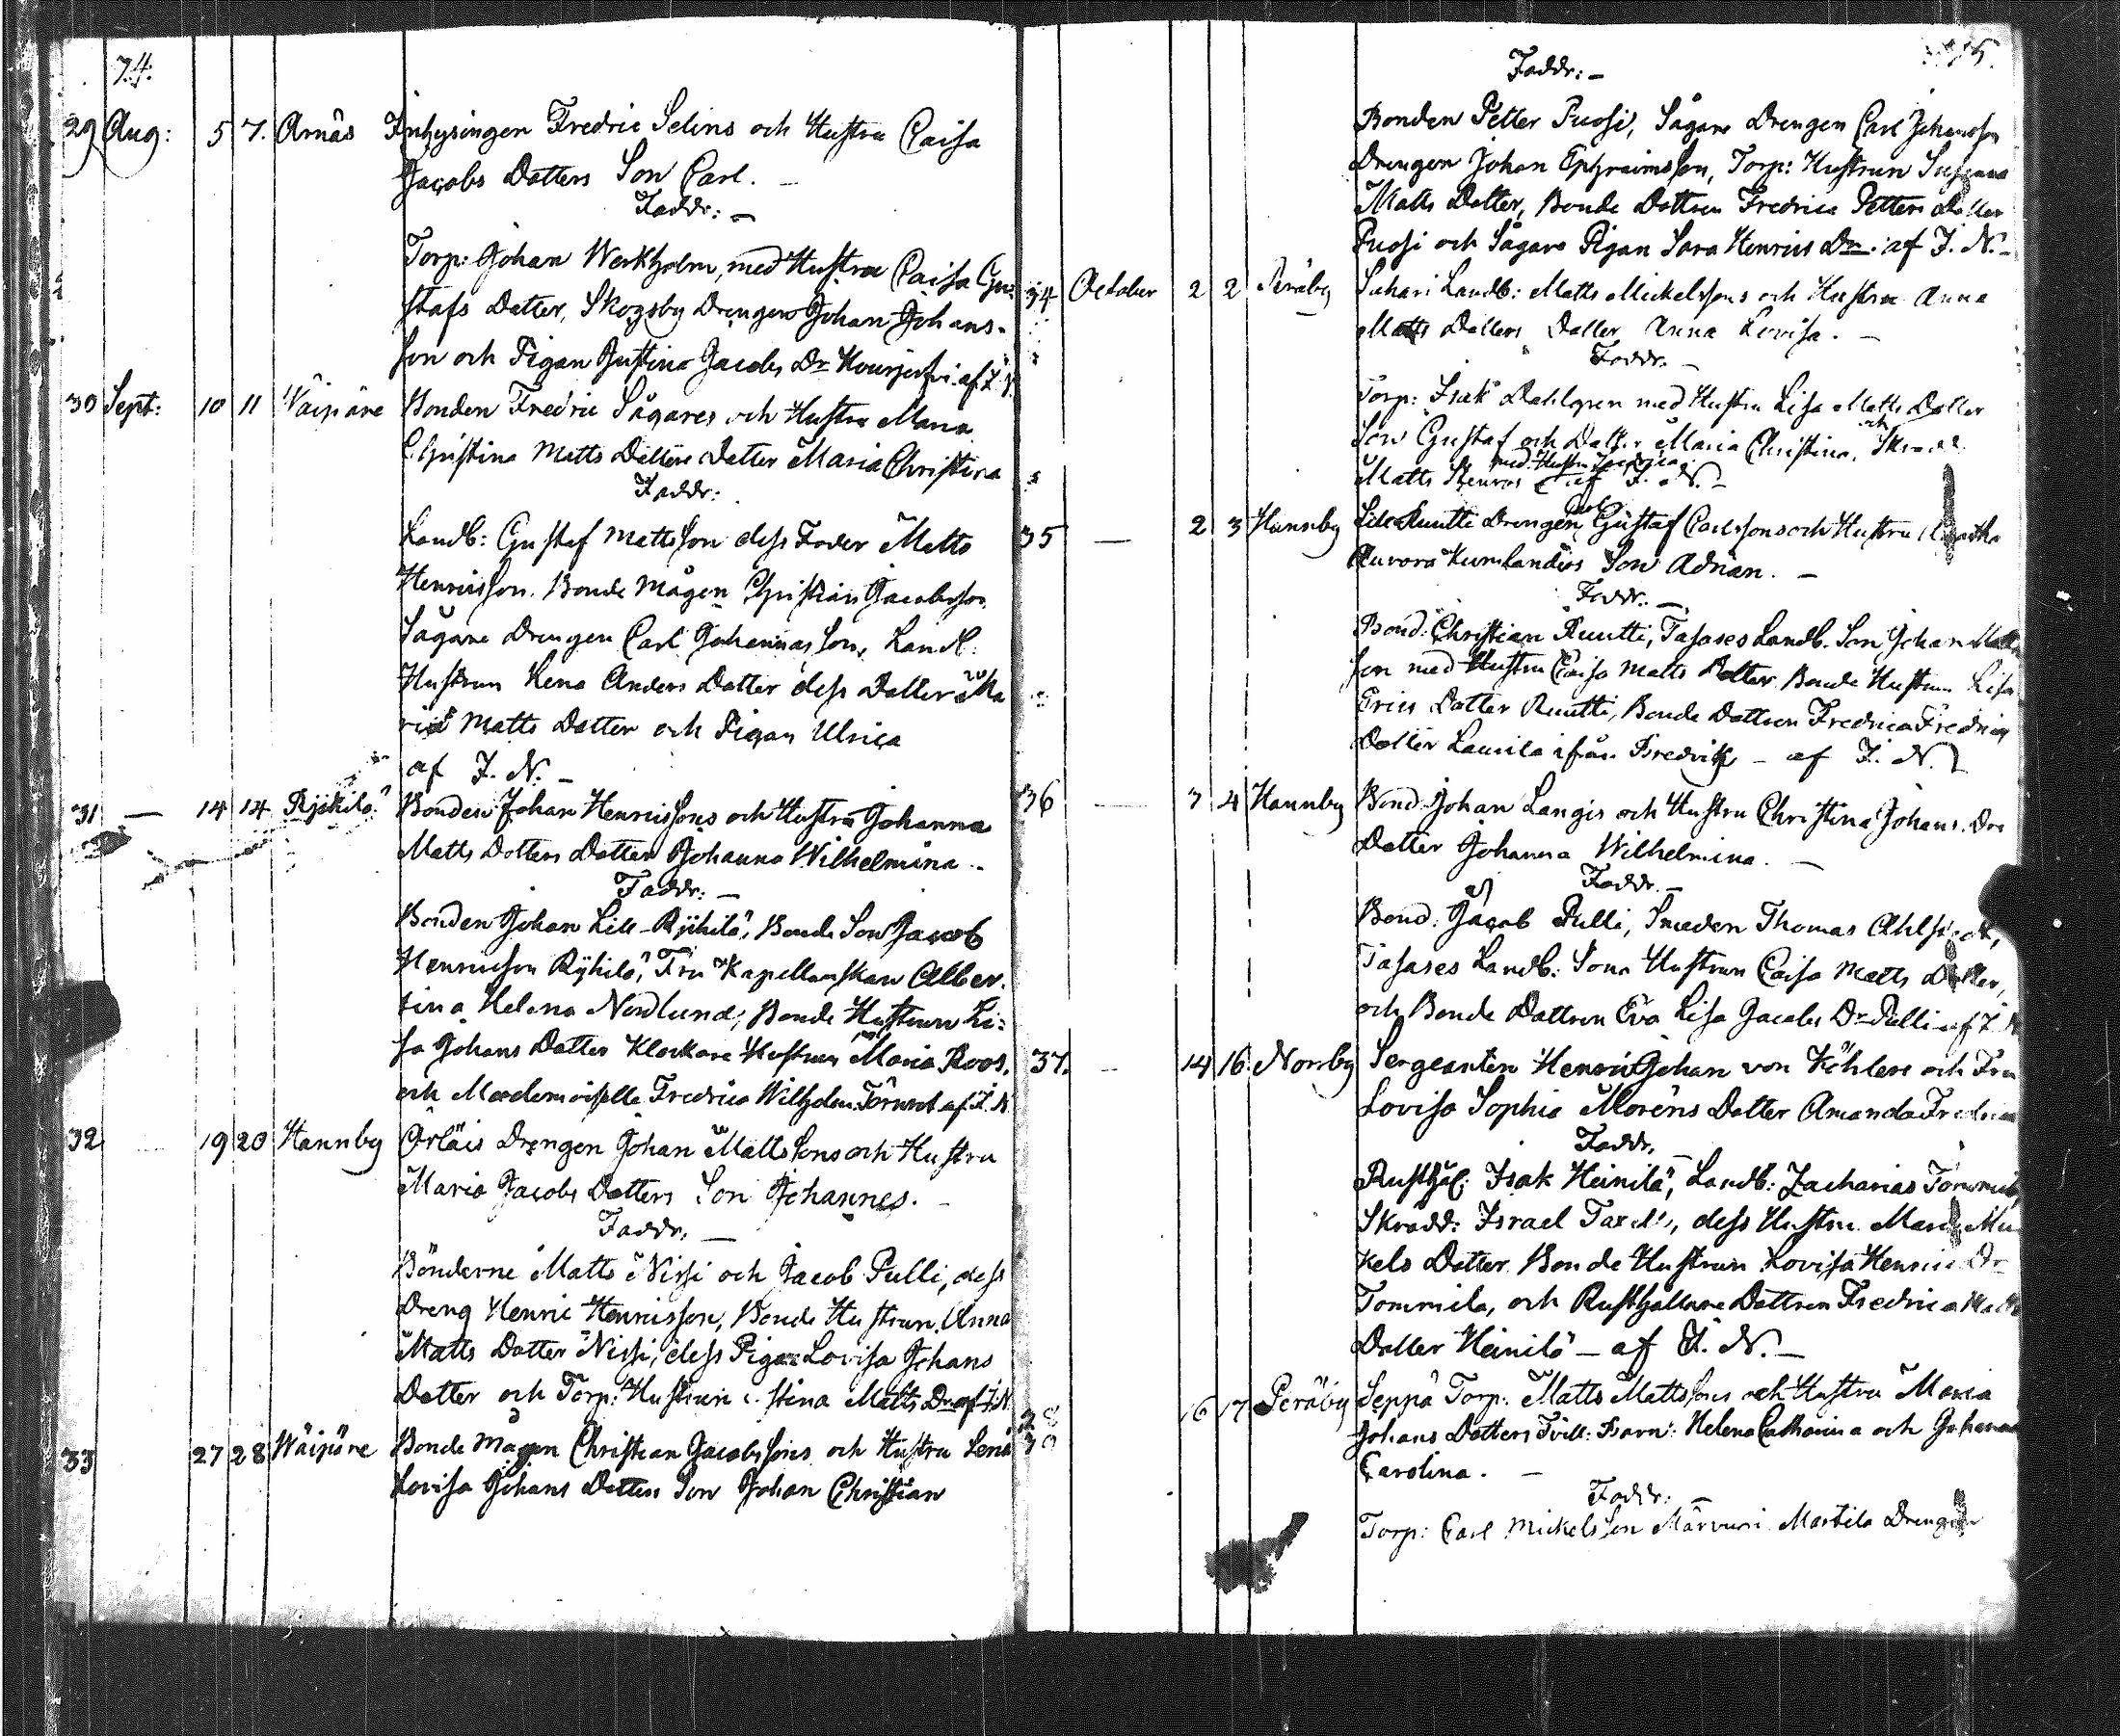 74.
29 Aug: 5 7. Arnäs Inhysingen Fredric Selins och Hustru Caisa
Jacobs Dotters Son Carl. —
Faddr: —
Torp: Johan Werkholm, med Hustru Caisa Gu-
stafs Dotter, Skogsby Drengen Johan Johans-
son och Pigan Justina Jacobs Dr af F. N.
30 Sept: 10 11 Wäipäre Bonden Fredric Sågares och Hustru Maria
Christina Matts Dotters Dotter Maria Christina
Faddr:
Landb: Gustaf Mattsson dess Fader Matts
Henricsson. Bonde Mågen Christian Jacobsson
Sågare Drengen Carl Johannasson, Landb:
Hustrun Lena Anders Dotter dess Dotter Ma
ria Matts Dotter och Pigan Ulrica
af F. N. —
31 — 14 14 Rijhilä Bonden Johan Henricssons och Hustru Johanna
Matts Dotters Dotter Johanna Wilhelmina —
Faddr: —
Bonden Johan Lill-Rijhilä, Bonde Son Jacob
Henricsson Rijhilä, Fru Kapellanskan Alber-
tina Helena Nordlund, Bonde Hustrun Li-
sa Johans Dotter Klockare Hustrun Maria Roos,
och Mademoiselle Fredrica Wilhelm: Törnrot af F. N
32 19 20 Hannby Orläis Drengen Johan Mattssons och Hustru
Maria Jacobs Dotters Son Johannes. —
Faddr: —
Bönderne Matts Nissi och Jacob Pulli, dess
Dreng Henric Henricsson, Bonde Hustrun Anna
Matts Dotter Nissi, dess Piga Lovisa Johans
Dotter och Torp: Hustrun Stina Matts Dr af F. N
33 27 28 Wäipäre Bonde Mågen Christian Jacobssons och Hustru Lena
Lovisa Johans Dotters Son Johan Christian
Faddr: —
Bonden Petter Puosi, Sågare Drengen Carl Johansson
Drengen Johan Ephraimsson, Torp: Hustrun Susanna
Matts Dotter, Bonde Dottren Fredrica Petters Dotter
Puosi och Sågare Pigan Sara Henrics Dr: af F. N. —
34 October 2 2 Peräby Suhari Landb: Matts Mickelssons och Hustru Anna
Matts Dotters Dotter Anna Lovisa. —
Faddr. —
Torp: Isak Dahlgren med Hustru Lisa Matts Dotter
Son Gustaf och Dotter Maria Christina, och
Matts med Hustru af F. N. —
35 — 2 3 Hannby Lill Ruutti Drengen Carl Gustaf Carlssons och Hustru
Aurora Kumlanders Son Adrian. —
Faddr: —
Bond: Christian Ruutti, Tasases Landb. Son Johan Matts
son med Hustru Caisa Matts Dotter Bonde Hustrun Lisa
Erics Dotter Ruutti, Bonde Dottren Fredrica Fredrics
Dotter Laurila ifrån Fredvik — af F. N.
36 — 3 4 Hannby Bond: Johan Langis och Hustru Christina Johans Drs
Dotter Johanna Wilhelmina. —
Faddr. —
Bond: Jacob Pulli, Smeden Thomas
Tasases Landb: Sons Hustrun Caisa Matts Dotter,
och Bonde Dottren Eva Lisa Jacobs Dr Pulli af F. N
37. 14 16. Norrby Sergeanten Henric Johan von Köhlers och Fru
Lovisa Sophia Moréns Dotter Amanda Fredrica
Faddr.
Rusthål: Isak Heinilä, Landb: Zacharias Tommila
Skrädd: Israel Taxell, dess Hustru Maria Mic
kels Dotter Bonde Hustrun Lovisa Henrics Dr
Tommila, och Rusthållare Dottren Fredrica Matts
Dotter Heinilä — af F. N. —
38 39 16 17 Peräby Seppä Torp: Matts Mattssons och Hustru Maria
Johans Dotters Tvill: Barn: Helena Catharina och Johanna
Carolina. —
Faddr: —
Torp: Carl Mickelsson Martila Drengen